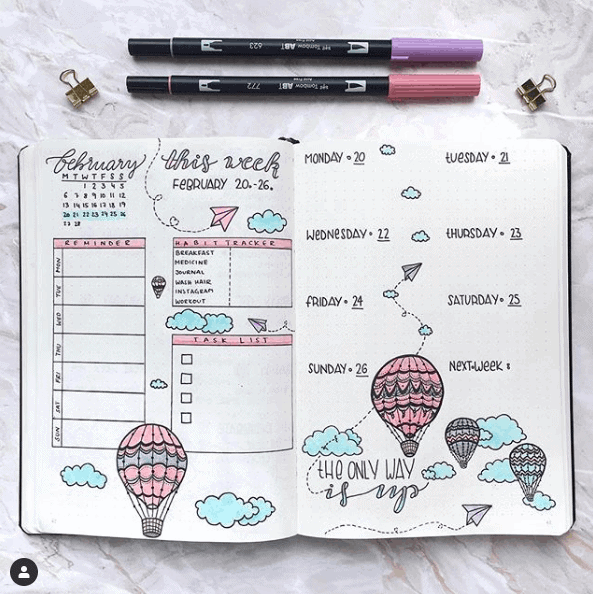 623 Tombow ABT
772 Tombow ABT
february
M T W T F S S
1 2 3 4 5
6 7 8 9 10 11 12
13 14 15 16 17 18 19
20 21 22 23 24 25 26
27 28
this week
FEBRUARY 20.-26.
REMINDER
MON
TUE
WED
THU
FRI
SAT
SUN
HABIT TRACKER
BREAKFAST
MEDICINE
JOURNAL
WASH HAIR
INSTAGRAM
WORKOUT
TASK LIST
MONDAY • 20
TUESDAY • 21
WEDNESDAY • 22
THURSDAY • 23
FRIDAY • 24
SATURDAY • 25
SUNDAY • 26
NEXT WEEK :
THE ONLY WAY
is up